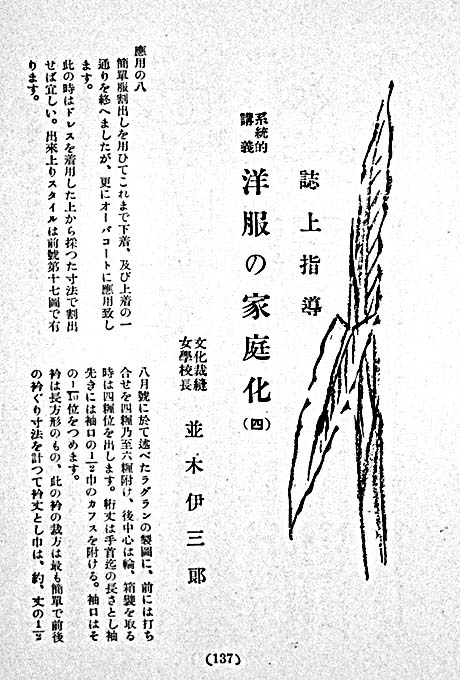 誌上指導
系統的
講義
洋服の家庭化(四)
文化裁縫
女學校長
並木伊三郎
應用の八
簡單服割出しを用ひてこれまで下着、及び上着の一
通りを終へましたが、更にオーバコートに應用致し
ます。
此の時はドレスを着用した上から採つた寸法で割出
せば宜しい。出來上りスタイルは前號第十七圖で有
ります。
八月號に於て述べたラグランの製圖に、前には打ち
合せを四糎乃至六糎附け、後中心は輪、箱襞を取る
時は四糎位を出します。裄丈は手首迄の長さとし袖
先きには袖口の1/2巾のカフスを附ける。袖口はそ
の1/10位をつめます。
衿は長方形のもの、此の衿の裁方は最も簡單で前後
の衿ぐり寸法を計つて衿丈とし巾は、約、丈の1/2
(137)